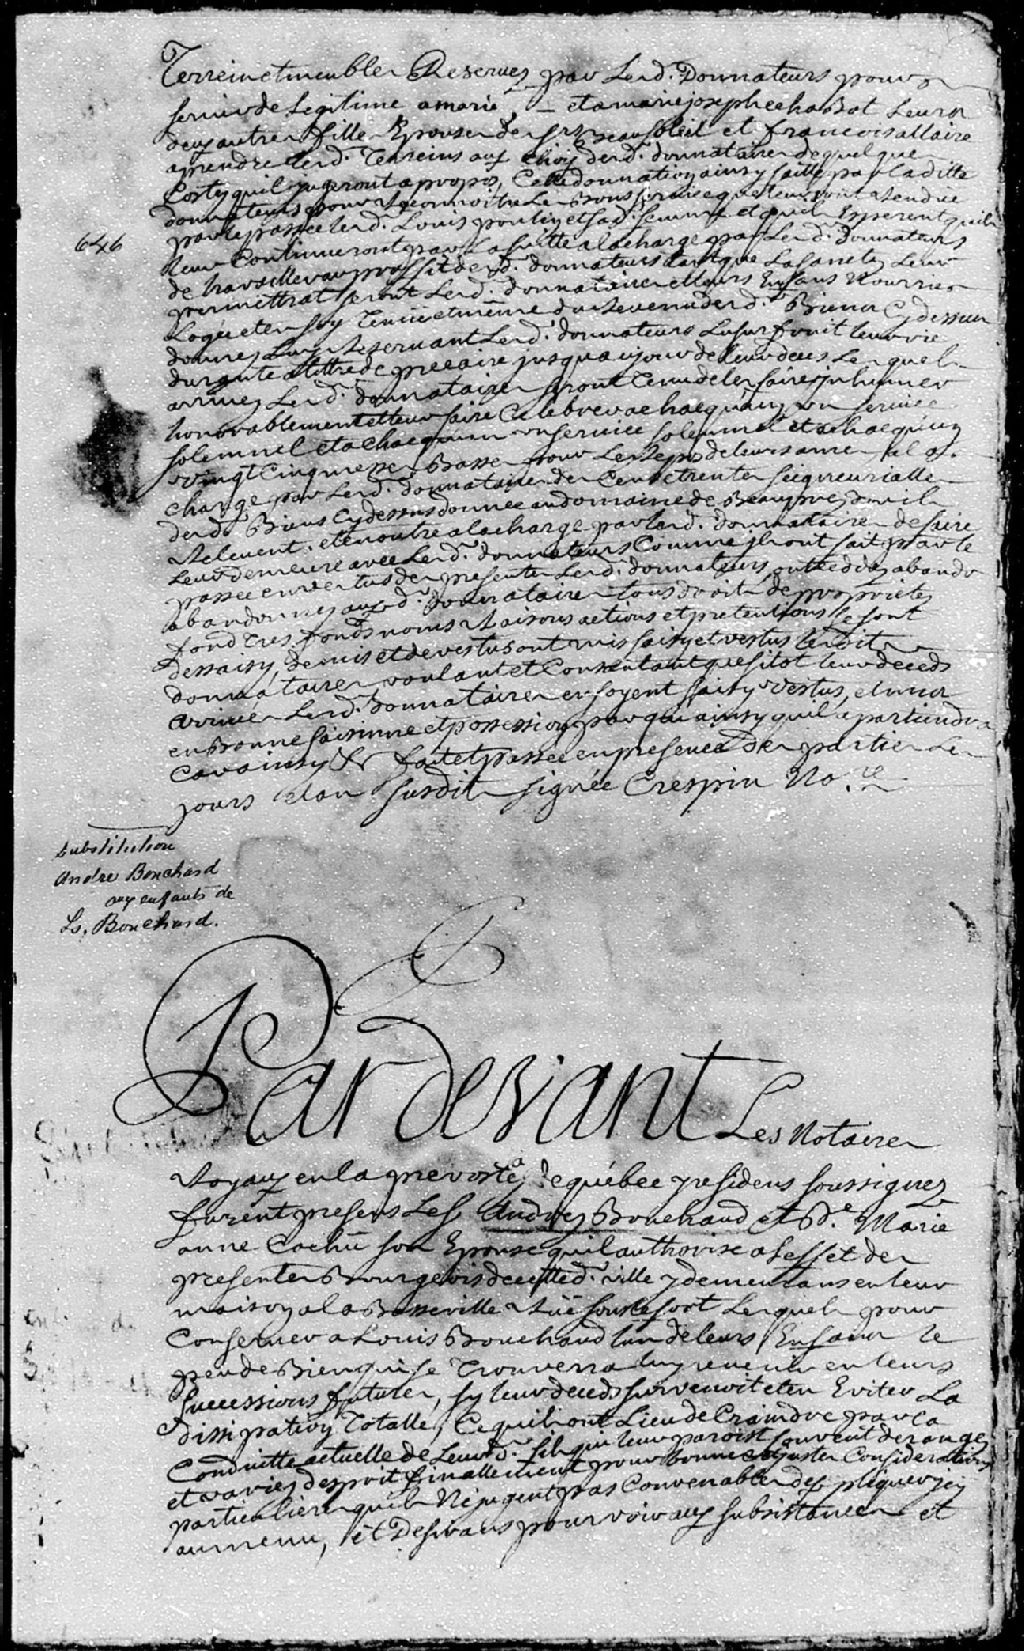 Terrein et meubles Reservez par Lesd. Donnateurs pour
servir de Legitime a marie et a marie josephe chabot Leurs
deux autres filles Epouses de Beausoleil et francois allaire
a prendre lesd. Terreins aux choix desd. donnataires de quelque
Costez quil jugeront a propos, Cette donnation ainsy faitte par Ladille
donnateurs pour reconnoitre Les Bons services que leur ont rendue
par le passee led. Louis et sad. femme et quil Esperent quils
646
Leur Continueront par La suitte a la charge par Lesd. donnateurs
de travailler au proffit desd. donnateurs tant que La santez Leur
permettrat seront Lesd. donnataires et leurs Enfans Nourries
Logez et ensoy Tenir et même du Revenu desd. Biens Cydessus
donnez Luy Reservant Lesd. donnateurs Lusurfruit leur vie
durante a tittre de precaire jusqu'au jour de leur deces Lesquels
arrivez Lesd. donnataires seront Tenu de les faire jnhumer
honorablement et leur faire Celebrer a chacquun un service
solemnel et a chacquun un service solemnel et a chacquun
vingt Cinq messes Basses pour Le repos de leurs ames
charge par Lesd. donnataires des Cens et rentes seigneurialles
desd. Biens Cydessus donnée au domaine de Beaupré dont il
Relevent. et en outre a la charge par Lesd. donnataires de faire
Leur demeure avec Lesd. donnateurs Comme jls ont fait par le
passee en vertus des presentes Lesd. donnateurs ont cedez abando
abandonnez auxd. donnataires tous droits de proprietez
fond Tres fonds noms Raisons actions et pretentions se sont
dessaisy, demis et devestus ont mis saisy et vestus Lesdits
donnataires voulant et Consentant que sitot leur deceds
arrivez Lesd. donnataires en soyent saisy Vestus, et mis
en Bonne saisinne et possession par qui ainsy quil apartiendra
Car ainsy &c fait et passee en presence des parties Les
jours et an susdit signée Crespin No.re
Substitution
André Bouchard
aux enfants de
Ls. Bouchard.
Par devant Les Notaires
Royaux en la prevosté de québec residens soussignez
furent presens Les S. Andrez Bouchaud et D.e Marie
anne Cochû son Epouse quil authorise a Leffet des
presentes Bourgeois de cette d. ville y demeurans en leur
maison a la Basse ville Rüe sous le fort Lesquels pour
Conserver a Louis Bouchaud lun de leurs Enfans le
peu de Bien qui se Trouverra luy revenir en leurs
successions futures, sy leur deceds survenoit et en Eviter La
dissipation Totalle, Ce quils ont Lieu de Craindre par La
Conduitte actuelle de Leurd. fils qui leur paroist souvent derangez
et varier desprit finallement pour bonne et justes Considerations
particulieres quils Ne jugent pas Convenables dexpliquer jcy
au menu, et Desirans pourvoir aux subsistances et